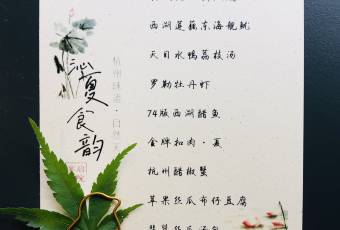 西湖莲藕东海舰鱿
天目水鸭荔枝汤
罗勒牡丹虾
74版西湖醋鱼
金牌扣肉·夏
杭州醋椒蟹
苹果丝瓜布仔豆腐
沁夏食韵
杭州味道·自然